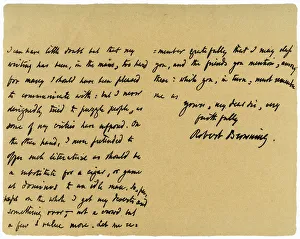 I can have little doubt but that my
writing has been, in the main, too hard
for many I should have been pleased
to communicate with: but I never
designedly tried to puzzle people, as
some of my critics have supposed. On
the other hand, I never pretended to
offer such literature as should be
a substitute for a cigar, or game
at dominos to an idle man. So, per-
haps on the whole I get my deserts and
something over — not a crowd but
a few I value more. Let me re-
=member gratefully that I may class
you, and the friends you mention, among
these: while you, in turn, must remember
me as
yours, my dear sir, very
faithfully
Robert Browning.